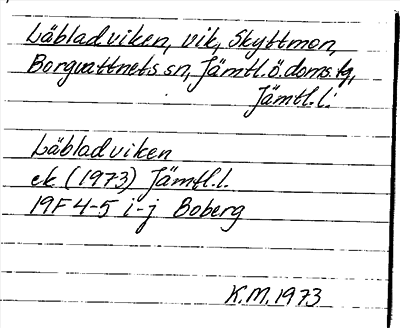 Läbladviken, vik, Skyttmon,
Borgvattnets sn, Jämtl.ö.doms.fg,
Jämtl.l.
Läbladviken
ek (1973) Jämtl.l.
19F 4-5 i-j Boberg
K.M. 1973